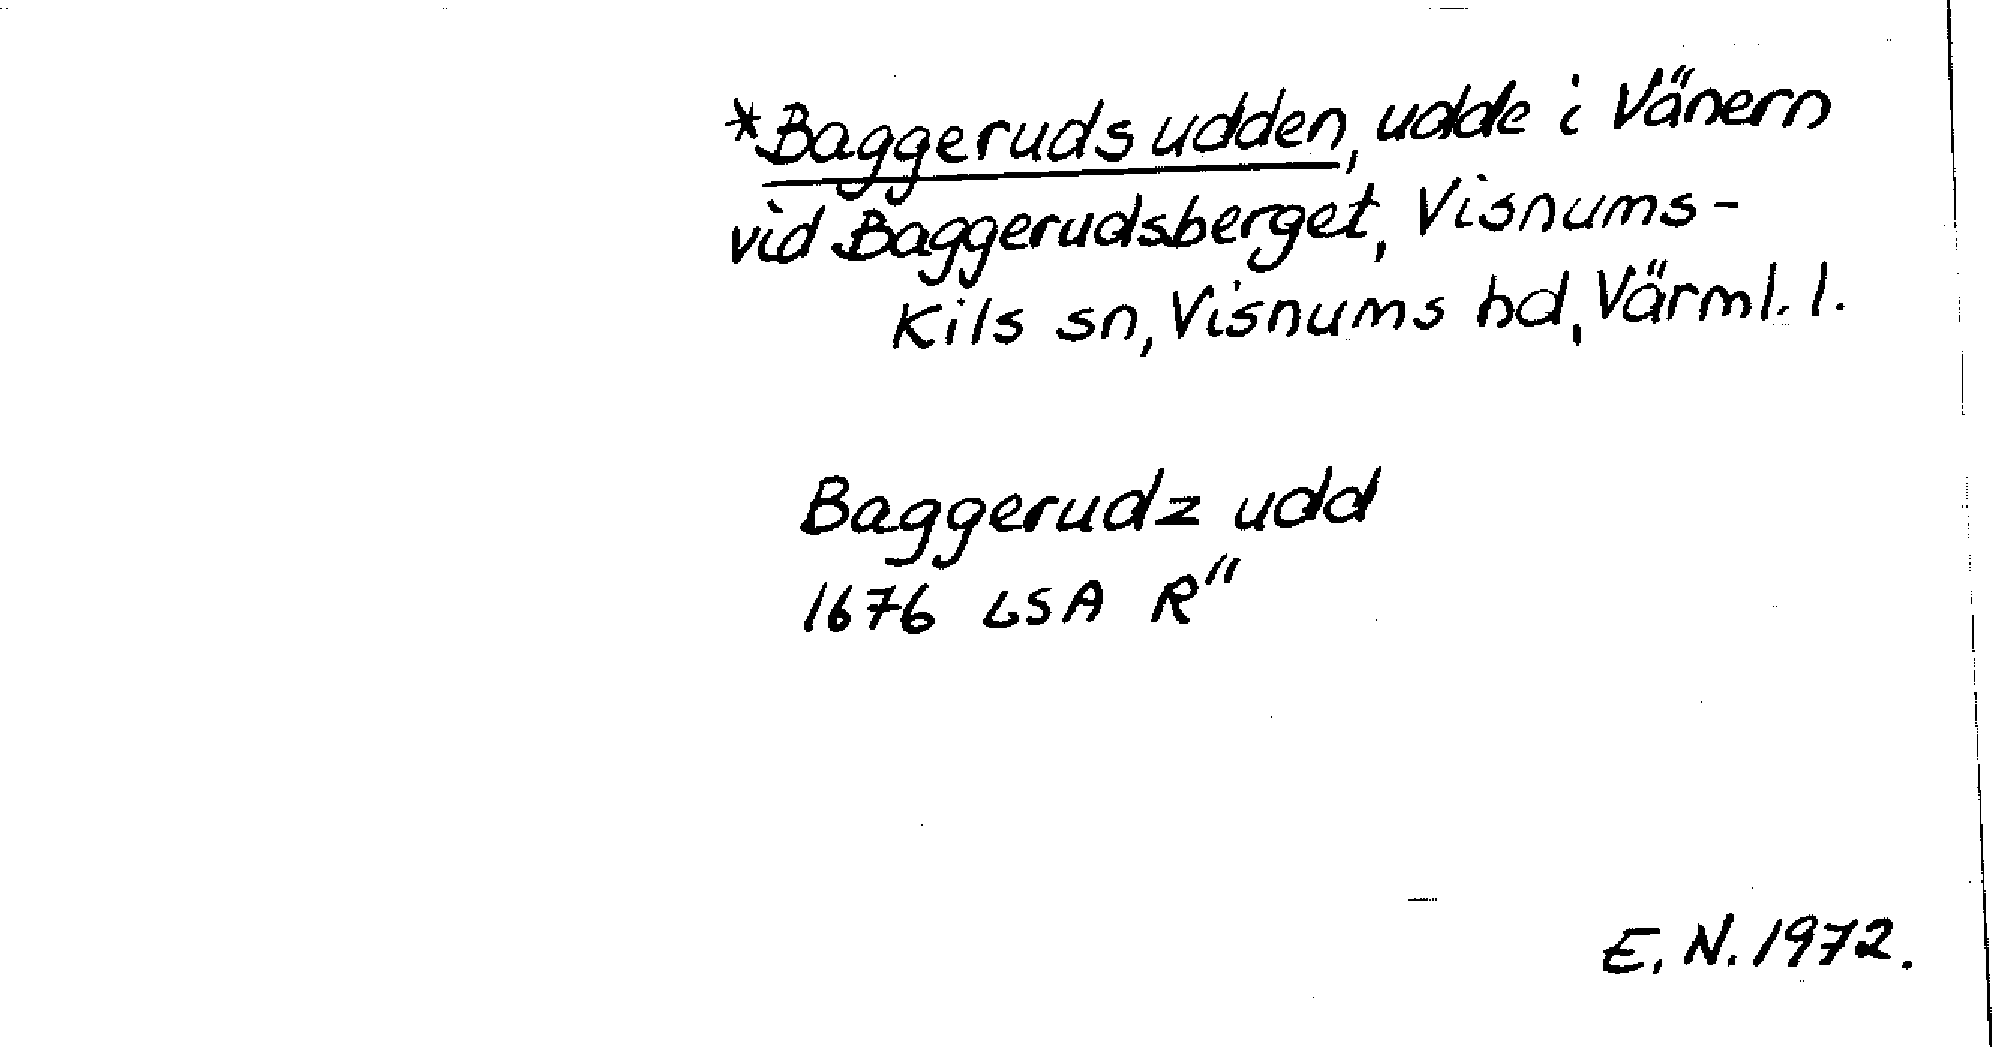 *Baggerudsudden, udde i Vänern
vid Baggerudsberget, Visnums-
Kils sn, Visnums hd, Värml. l.
Baggerudz udd
1676 LSA R"
E. N. 1972.